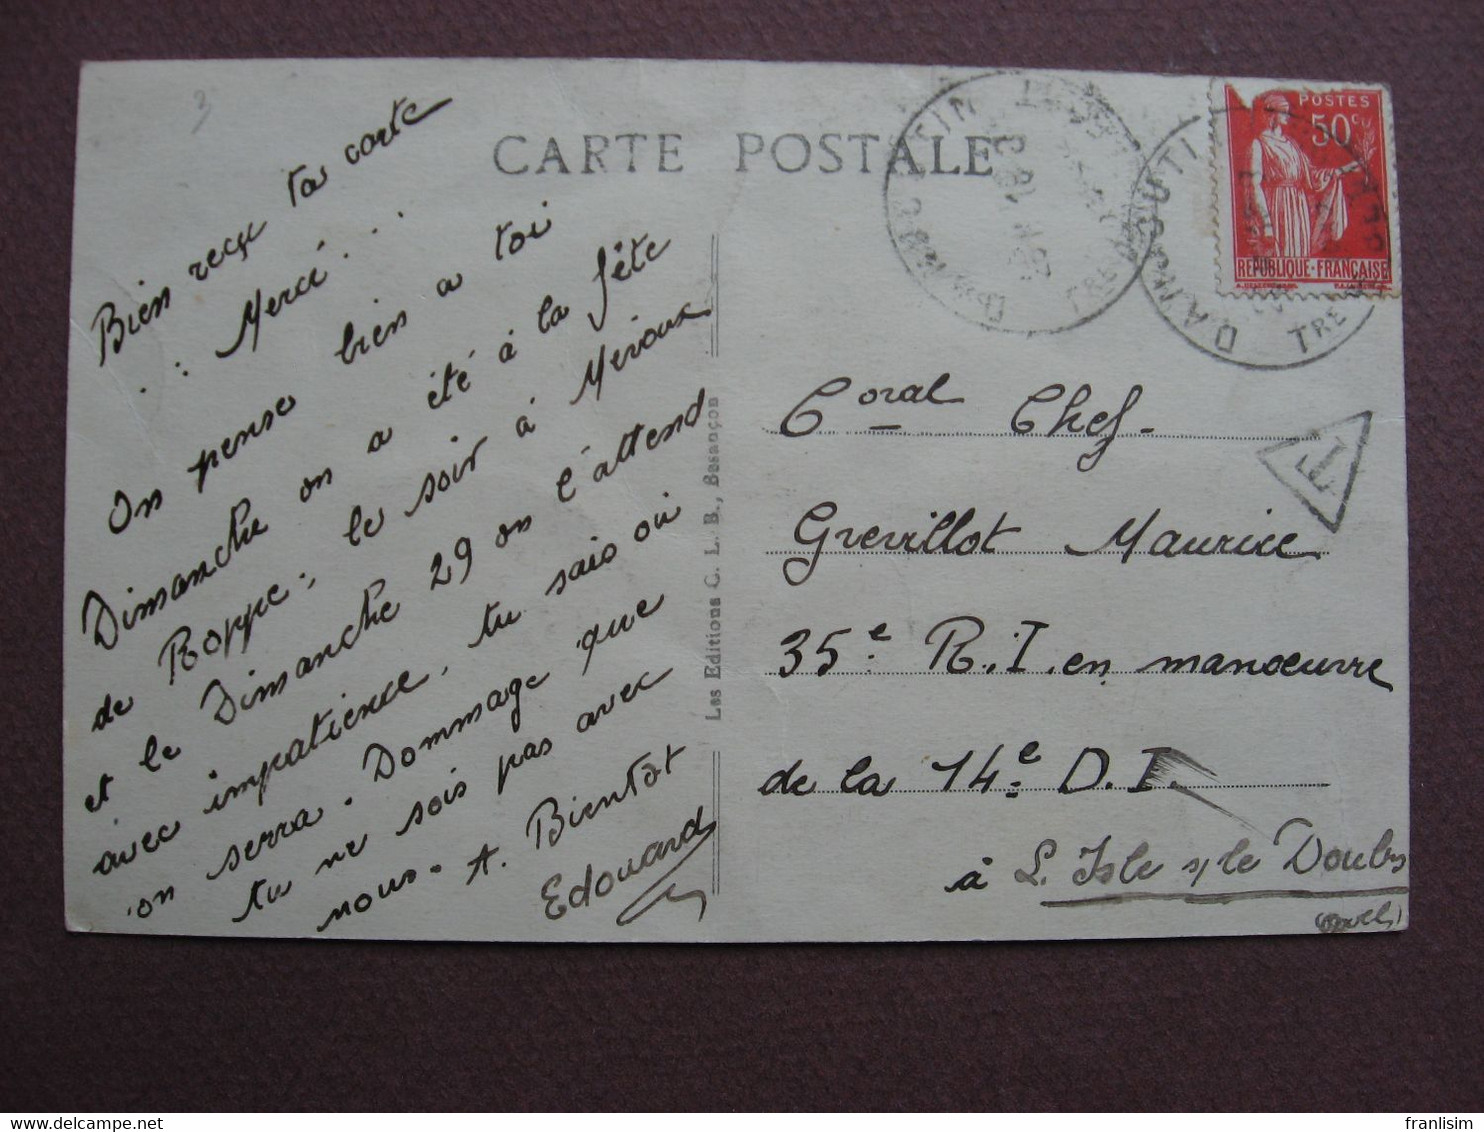 3
CARTE POSTALE
POSTES
50c
RÉPUBLIQUE-FRANÇAISE
T
Bien reçu ta carte
. : Merci . : .
On pense bien a toi
Dimanche on a été à la fête
de Roppe; le soir à Meroux
et le Dimanche 29 on t'attend
avec impatience. tu sais où
on serra. Dommage que
tu ne sois pas avec
nous. A. Bientôt
Edouard
Les Editions C. L. B., Besançon
Coral Chef.
Grevillot Maurice
35e R.I. en manoeuvre
de la 14e D.I.
à L'Isle s/le Doubs
(Doubs)
franlisim
delcampe.net